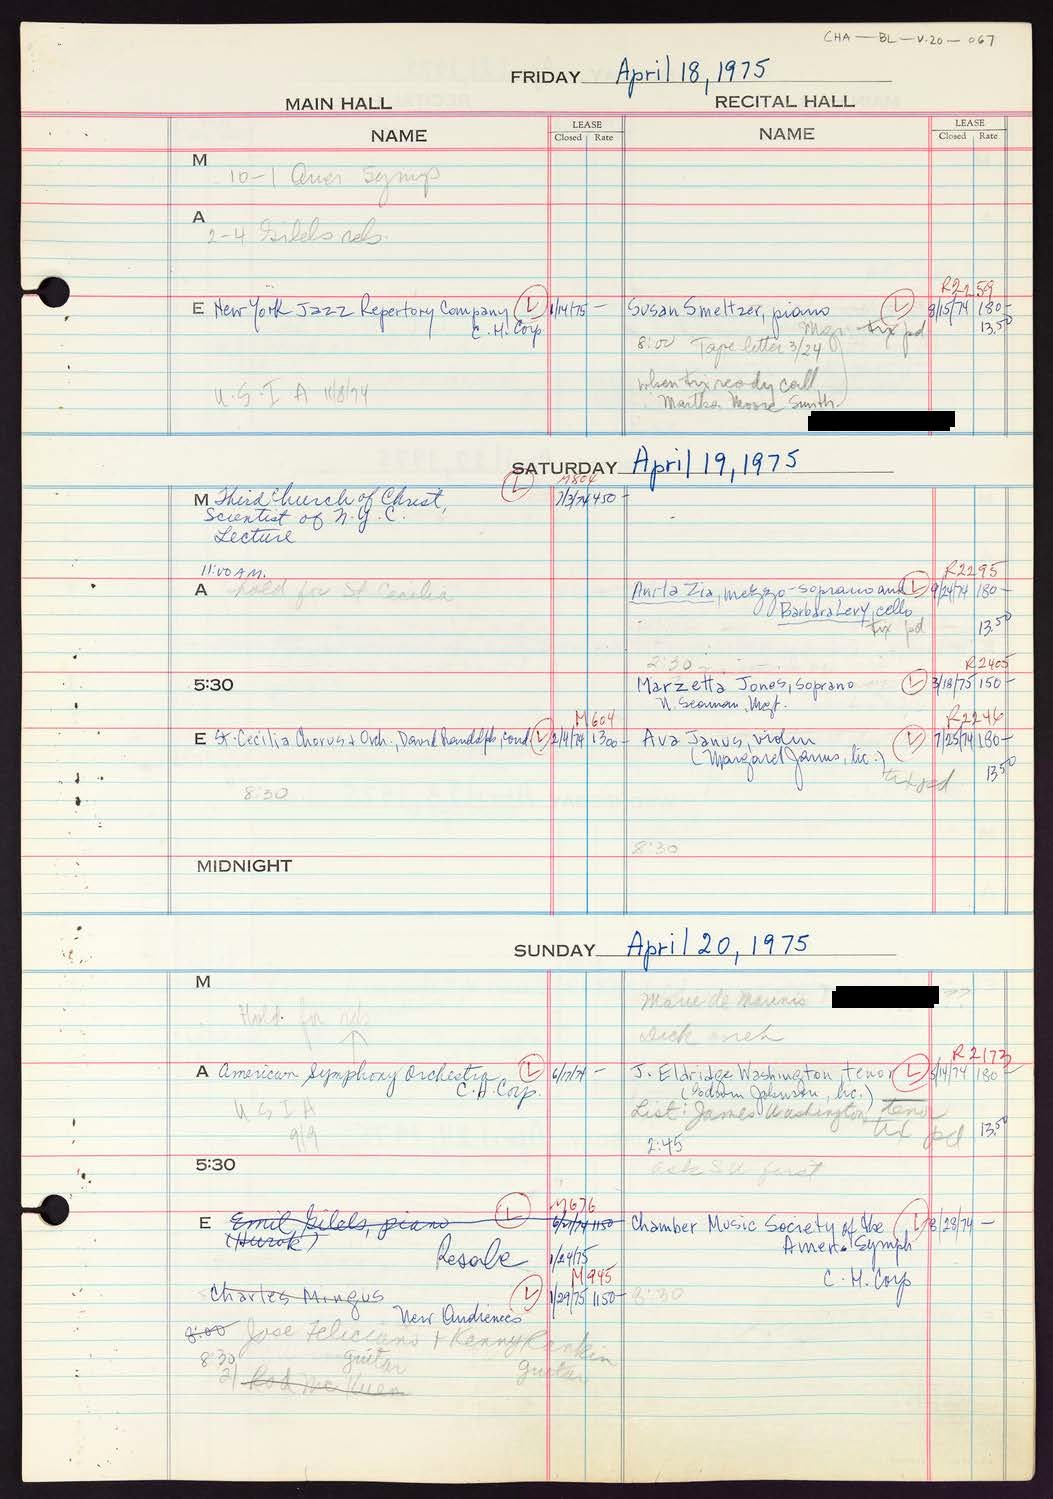 CHA — BL — V.20 — 067
FRIDAY April 18, 1975
MAIN HALL RECITAL HALL
NAME LEASE Closed Rate NAME LEASE Closed Rate
M
10-1 Amer Symp
A
2-4 Gilels reh.
R2259
E New York Jazz Repertory Company L 1/14/75 — Susan Smeltzer, piano L 8/15/74 180-
C.H. Corp Mgr tix pd 13.50
8:00 Tape letter 3/24
U.S.I A 11/8/74 when tix ready call
Martha Moore Smith
SATURDAY April 19, 1975
L M804
M Third Church of Christ, 7/3/74 450-
Scientist of N.Y.C.
Lecture
11:00 AM.
R2295
A hold for St Cecilia Anita Zia, mezzo-soprano and L 9/24/74 180-
Barbara Levy, cello
tix pd 13.50
2:30
R2405
5:30 Marzetta Jones, soprano L 3/18/75 150-
N. Seaman, Mgt.
M604 R2246
E St. Cecilia Chorus & Orch., David Randolph, cond. L 2/4/74 1300- Ava Janus, violin L 7/25/74 180-
(Margaret Janus, lic.)
tix pd 13.50
8:30
8:30
MIDNIGHT
SUNDAY April 20, 1975
M
Marie de Marinis
Hold for reh
R2173
A American Symphony Orchestra L 6/17/74 — J. Eldridge Washington, tenor L 5/14/74 180-
C.H. Corp. (Godsom Johnson, lic.)
U S I A List: James Washington, tenor
9/9 tix pd 13.50
2:45
5:30 ask SU first
M676
E Emil Gilels, piano L 6/21/74 1150 Chamber Music Society of the L 8/28/74 —
(Hurok) Amer. Symph
Resale 1/24/75
C.H. Corp
M945
Charles Mingus L 1/29/75 1150- 8:30
New Audiences
8:00 Jose Feliciano + Kenny Rankin
8:30 guitar guitar
2) Rod McKuen